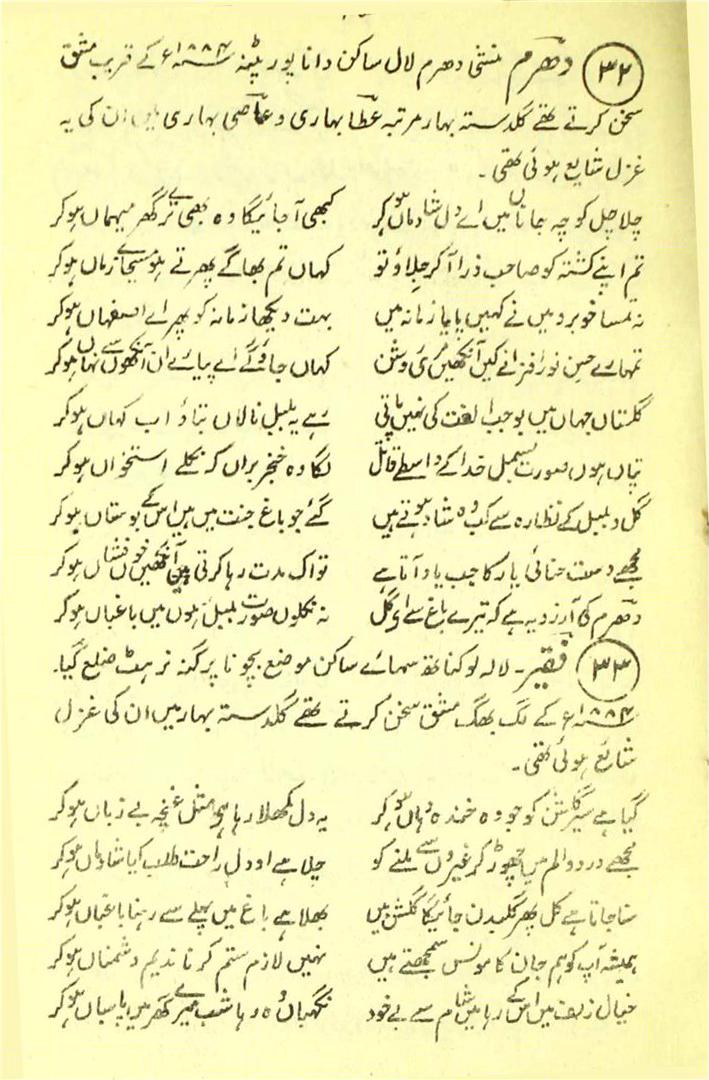 ۳۲ دھرم منشی دھرم لال ساکن دانا پور پٹنہ ۱۸۸۴ء کے قریب مشق
سخن کرتے تھے گلدستہ بہار مرتبہ عطا بہاری و عاصی بہاری میں ان کی یہ
غزل شایع ہوئی تھی۔
چلا چل کوچہ جاناں میں اے دل شادماں ہو کر کبھی آ جائیگا وہ بھی ترے گھر میہماں ہو کر
تم اپنے کشتہ کو صاحب ذرا آ کر جلاؤ تو کہاں تم بھاگے پھرتے ہو مسیحائے زماں ہو کر
نہ تمسا خوبرو میں نے کہیں پایا زمانہ میں بہت دیکھا زمانہ کو پھر اے اصفہاں ہو کر
تمہارے حسن نور افزا نے کیں آنکھیں مری روشن کہاں جاؤ گے اے پیارے ان آنکھوں سے نہاں ہو کر
گلستاں جہاں میں بو جب الفت کی نہیں پاتی رہے یہ بلبل نالاں بتاؤ اب کہاں ہو کر
تپاں ہوں صورت بسمل خدا کے واسطے قاتل لگا وہ خنجر براں کہ نکلے استخواں ہو کر
گل و بلبل کے نظارہ سے کب وہ شاد ہوتے ہیں گئے جو باغ جنت میں ہیں اس کے بوستاں ہو کر
مجھے دست حنائی یار کا جب یاد آتا ہے تو اک مدت رہا کرتی ہیں آنکھیں خوں فشاں ہو کر
دھرم کی آرزو یہ ہے کہ تیرے باغ سے ای گل نہ نکلوں صورت بلبل ہوں میں باغباں ہو کر
۳۳ فقیر۔ لالہ لوکناتھ سہائے ساکن موضع بچونا پرگنہ نرہٹ ضلع گیا۔
۱۸۸۴ء کے لگ بھگ مشق سخن کرتے تھے گلدستہ بہار میں ان کی غزل
شایع ہوئی تھی۔
گیا ہے سیر گلشن کو جو وہ خندہ دہاں ہو کر یہ دل کمھلا رہا ہے مثل غنچہ بے زباں ہو کر
مجھے درد و الم میں چھوڑ کر غیروں سے ملنے کو چلا ہے او دل راحت طلب کیا شادماں ہو کر
سنا جاتا ہے کل پھر گلبدن جائیگا گلشن میں بھلا ہے باغ میں پہلے سے رہنا باغباں ہو کر
ہمیشہ آپ کو ہم جان کا مونس سمجھتے ہیں نہیں لازم ستم کرنا ندیم دشمناں ہو کر
خیال زلف میں اس کے رہا میں شام سے بے خود نگہباں وہ رہا شب میرے گھر میں پاسباں ہو کر